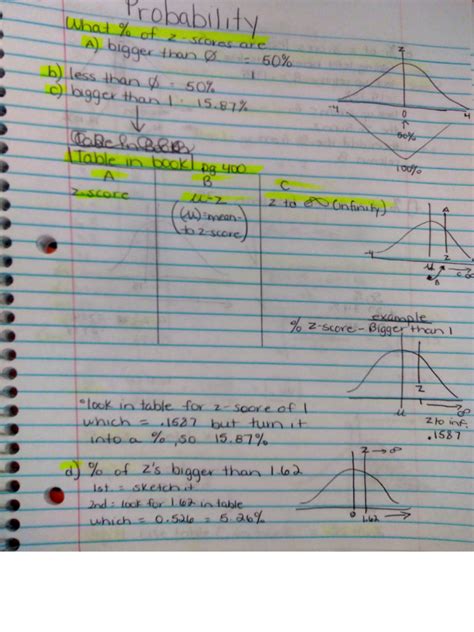 Probability
What % of z-scores are
A) bigger than Ø = 50%
b) less than Ø = 50%
c) bigger than 1 = 15.87%
Table in book pg 400
A B C
z-score μ-z z to ∞ (infinity)
(μ)=mean
to z-score
z
-4 0 4
50%
100%
-4 μ z
B
example
% z-score - Bigger than 1
μ 1 ∞
z to inf.
.1587
*look in table for z-score of 1
which = .1587 but turn it
into a %, so 15.87%
d) % of z's bigger than 1.62
1st = sketch it
2nd: look for 1.62 in table
which = 0.526 = 5.26%
z → ∞
0 1.62